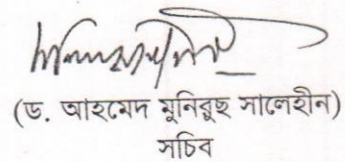 (ড. আহমেদ মুনিরুছ সালেহীন)
সচিব